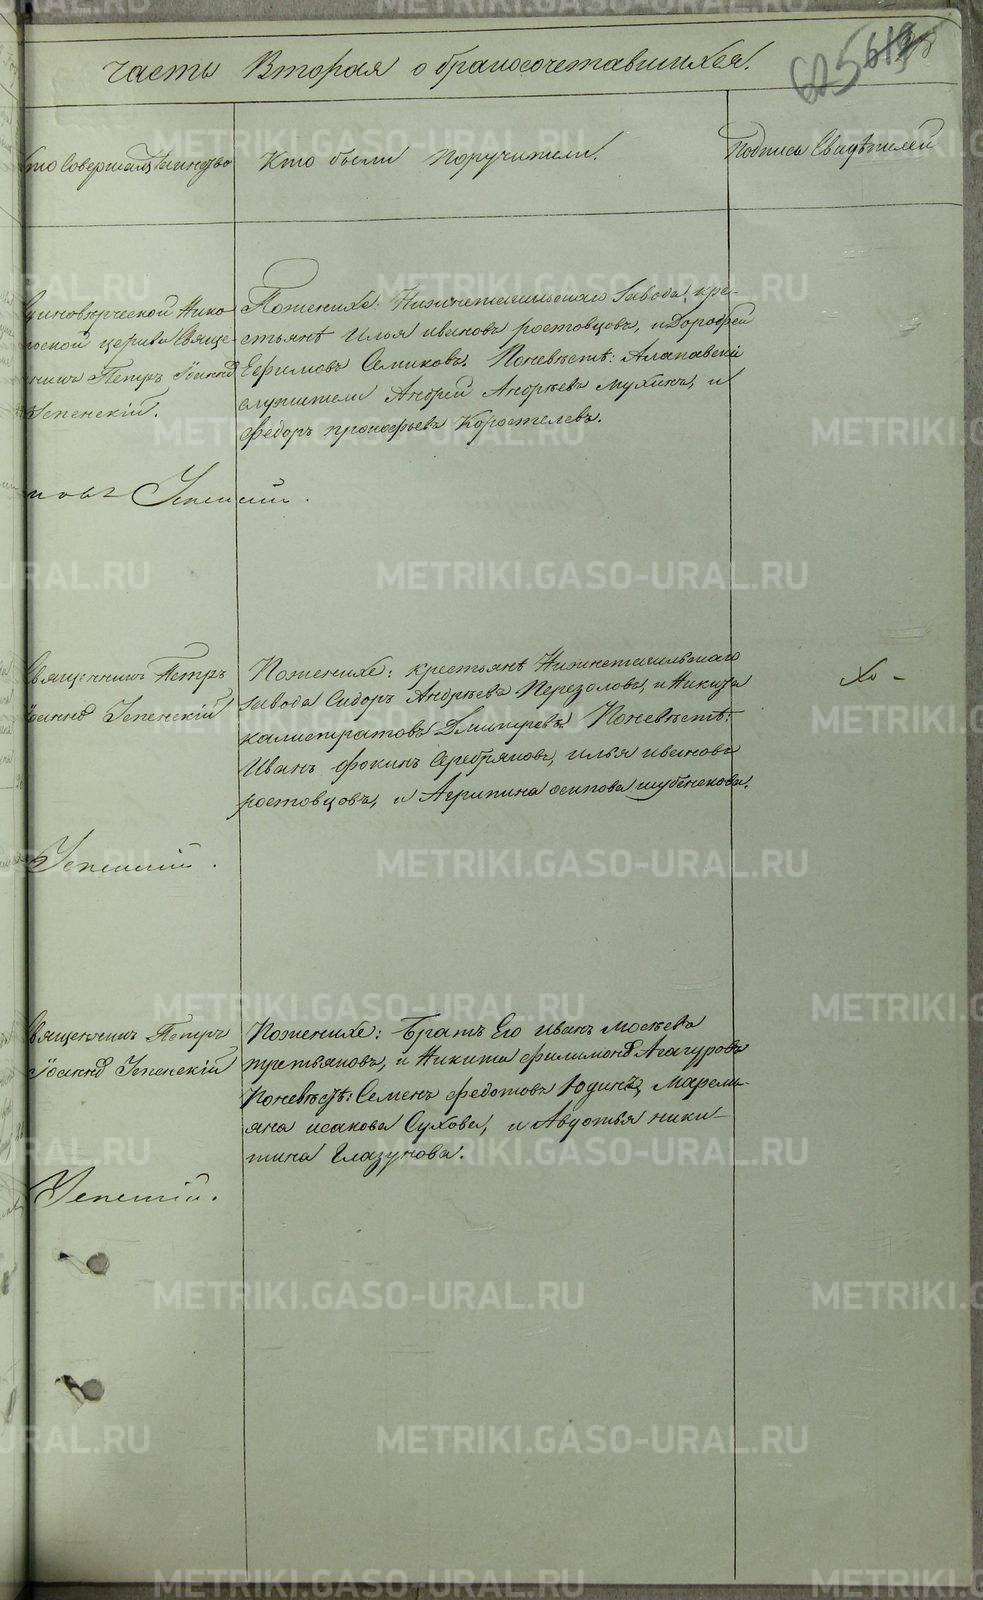 часть Вторая о бракосочетавшихся.
605
Кто Совершалъ Таинство
Кто были поручители.
Подписи Свидѣтелей
Единовѣрческой Нико
Церкви Свяще-
нникъ Петръ Іоанновъ
Успенскій.
Успенскій.
По женихѣ: Нижнетагильскаго Завода, кре-
стьянѣ Илья ивановъ ростовцовъ, и Дорофей
Ефимовъ Семиковъ. По невѣстѣ: Алапавскій
служители Андрей Андрѣевъ мухинъ, и
Федоръ прокофьевъ Коростелевъ.
Священникъ Петръ
Іоанновъ Успенскій
Успенскій.
По женихѣ: крестьянѣ Нижнетагильскаго
завода Сидоръ Андрѣевъ Перезоловъ, и Никита
калистратовъ Дмитревъ По невѣстѣ:
Иванъ фокинъ Серебряковъ, илья ивановъ
ростовцовъ, и Агрипина осипова шубенкова.
Священникъ Петръ
Іоанновъ Успенскій
Успенскій.
По женихѣ: Братъ Его иванъ мосѣевъ
третьяковъ, и Никита филимоновъ Агагуровъ
По невѣстѣ: Семенъ федотовъ Юдинъ, Маремь-
яна исакова Сухова, и Авдотья ники-
тина Глазунова.
METRIKI.GASO-URAL.RU